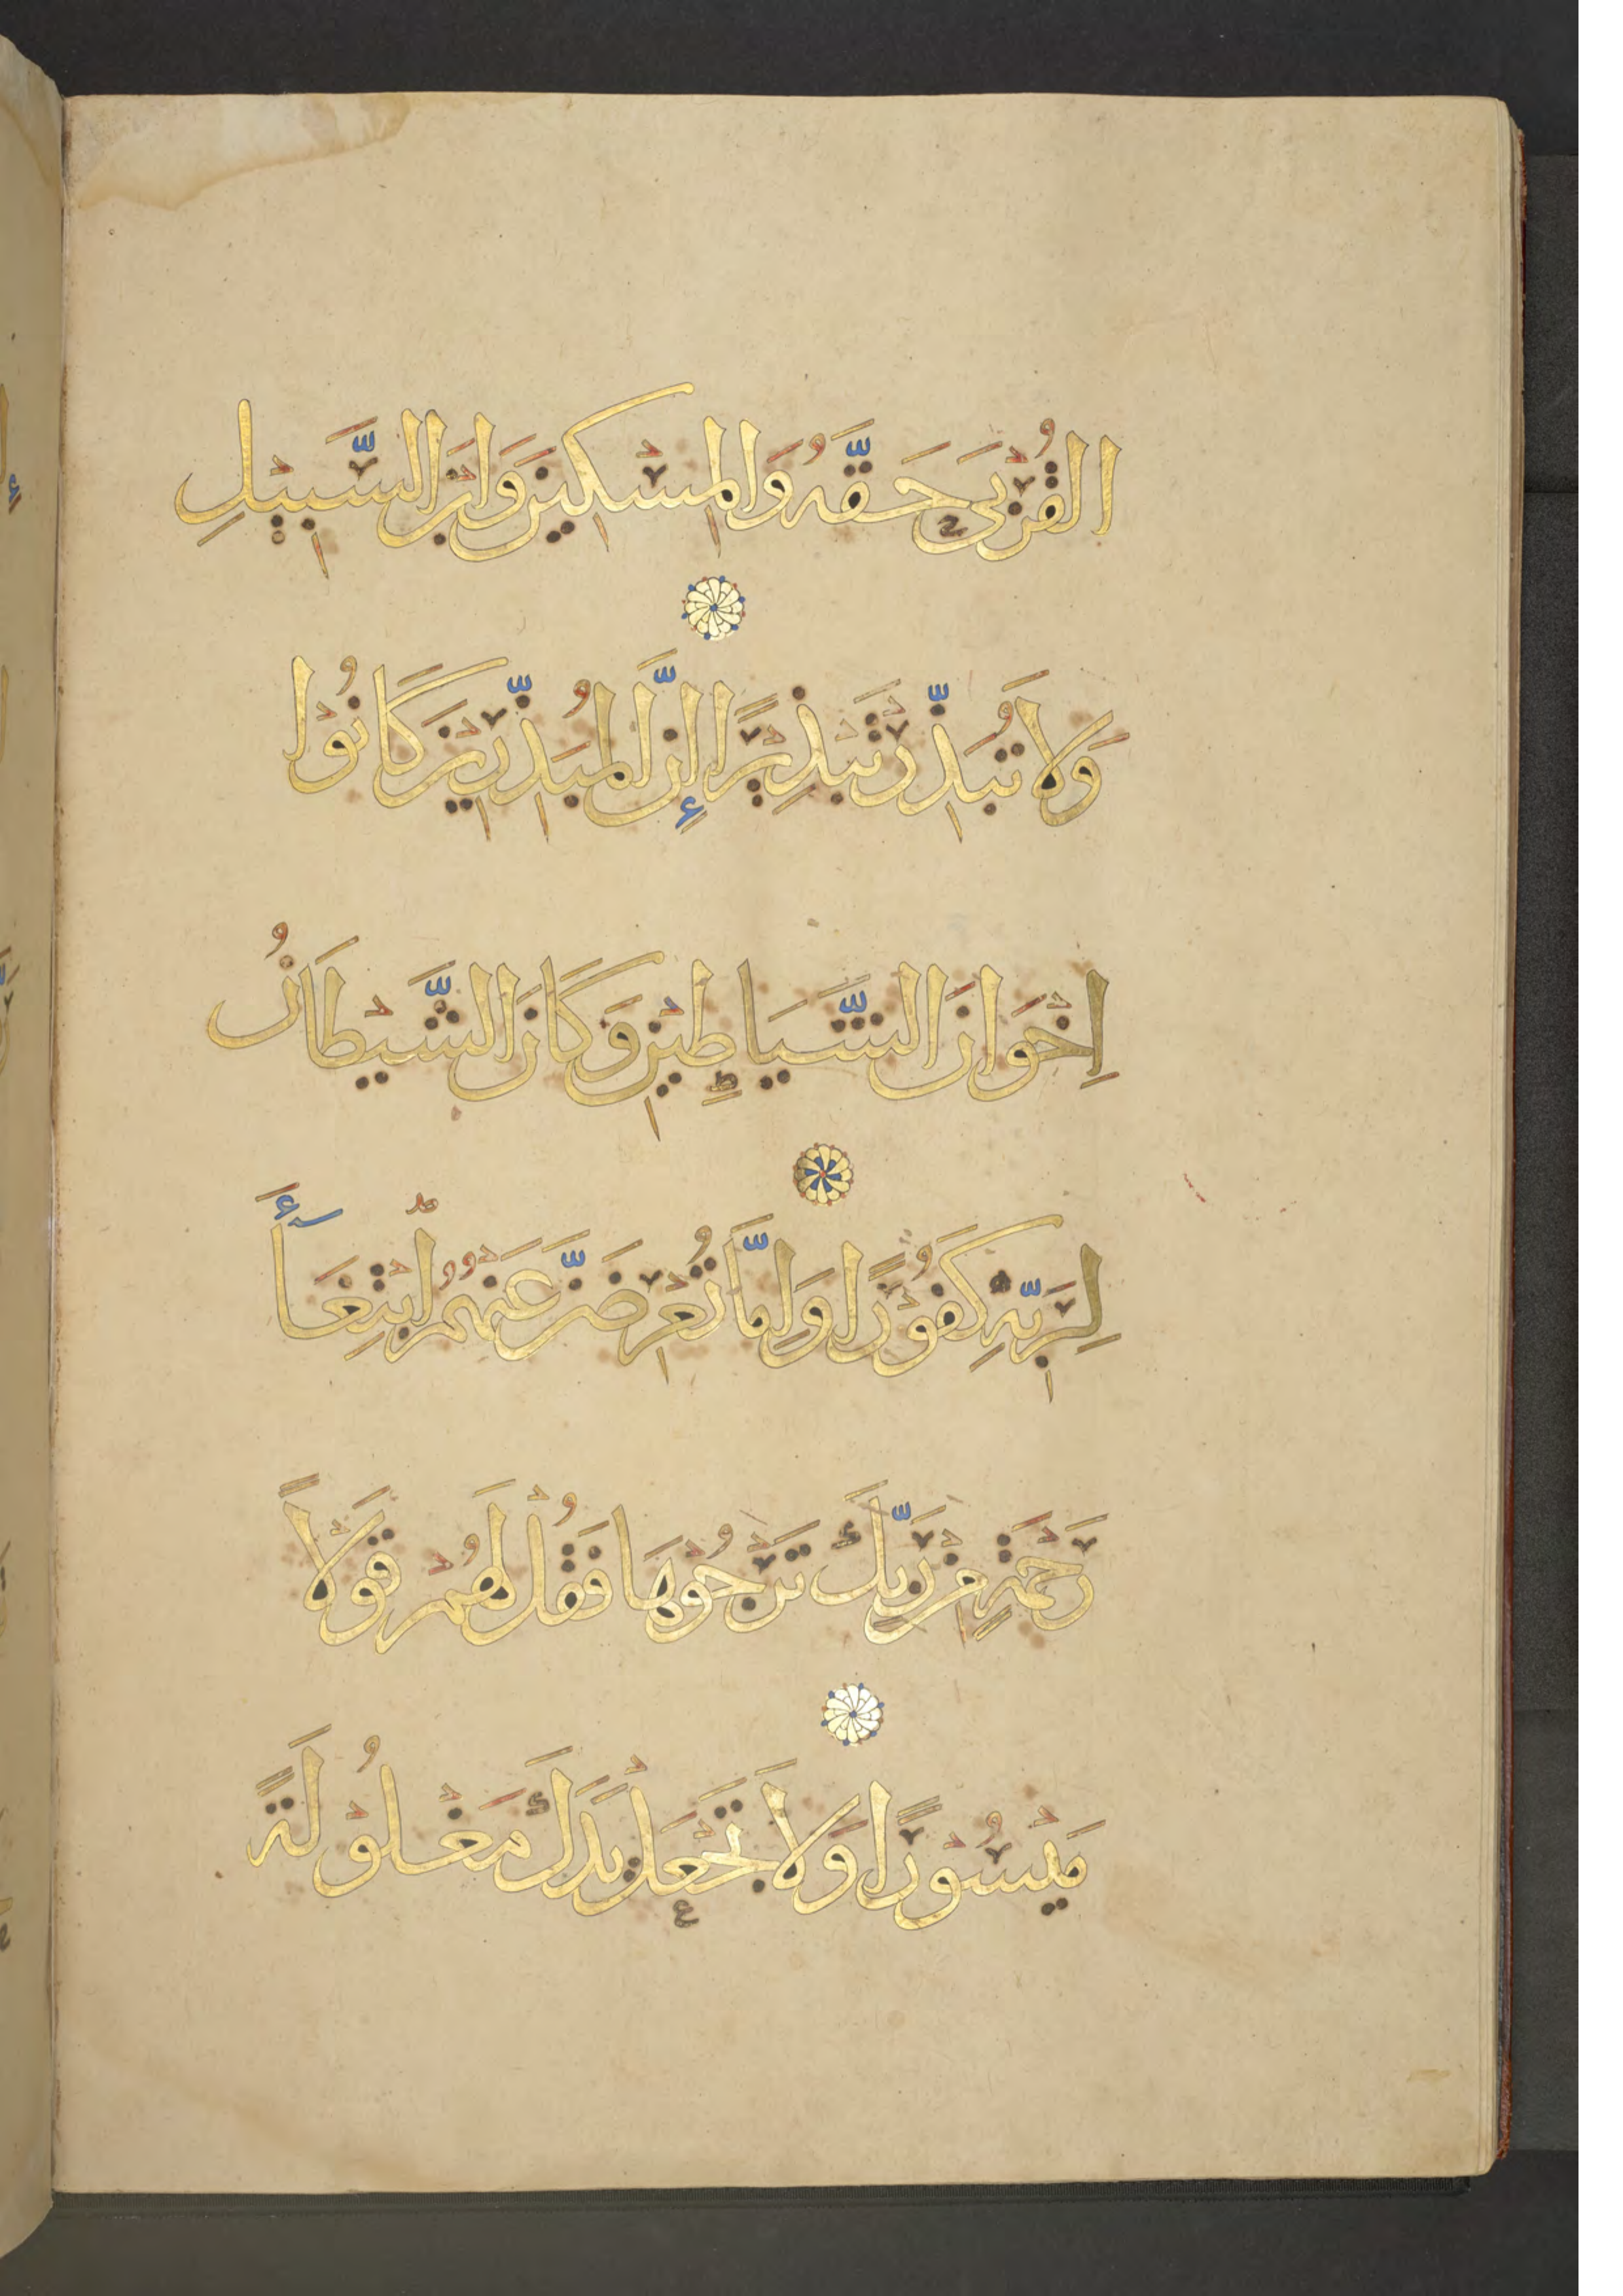 القُرْبَى حَقَّهُ وَالْمِسْكِينَ وَابْنَ السَّبِيْلِ
وَلَا تُبَذِّرْ تَبْذِيْرًا إِنَّ الْمُبَذِّرِيْنَ كَانُوْا
اِخْوَانَ الشَّيَاطِيْنِ وَكَانَ الشَّيْطَانُ
لِرَبِّهِ كَفُوْرًا وَاِمَّا تُعْرِضَنَّ عَنْهُمُ ابْتِغَآءَ
رَحْمَةٍ مِنْ رَبِّكَ تَرْجُوْهَا فَقُلْ لَهُمْ قَوْلًا
مَيْسُوْرًا وَلَا تَجْعَلْ يَدَكَ مَغْلُوْلَةً